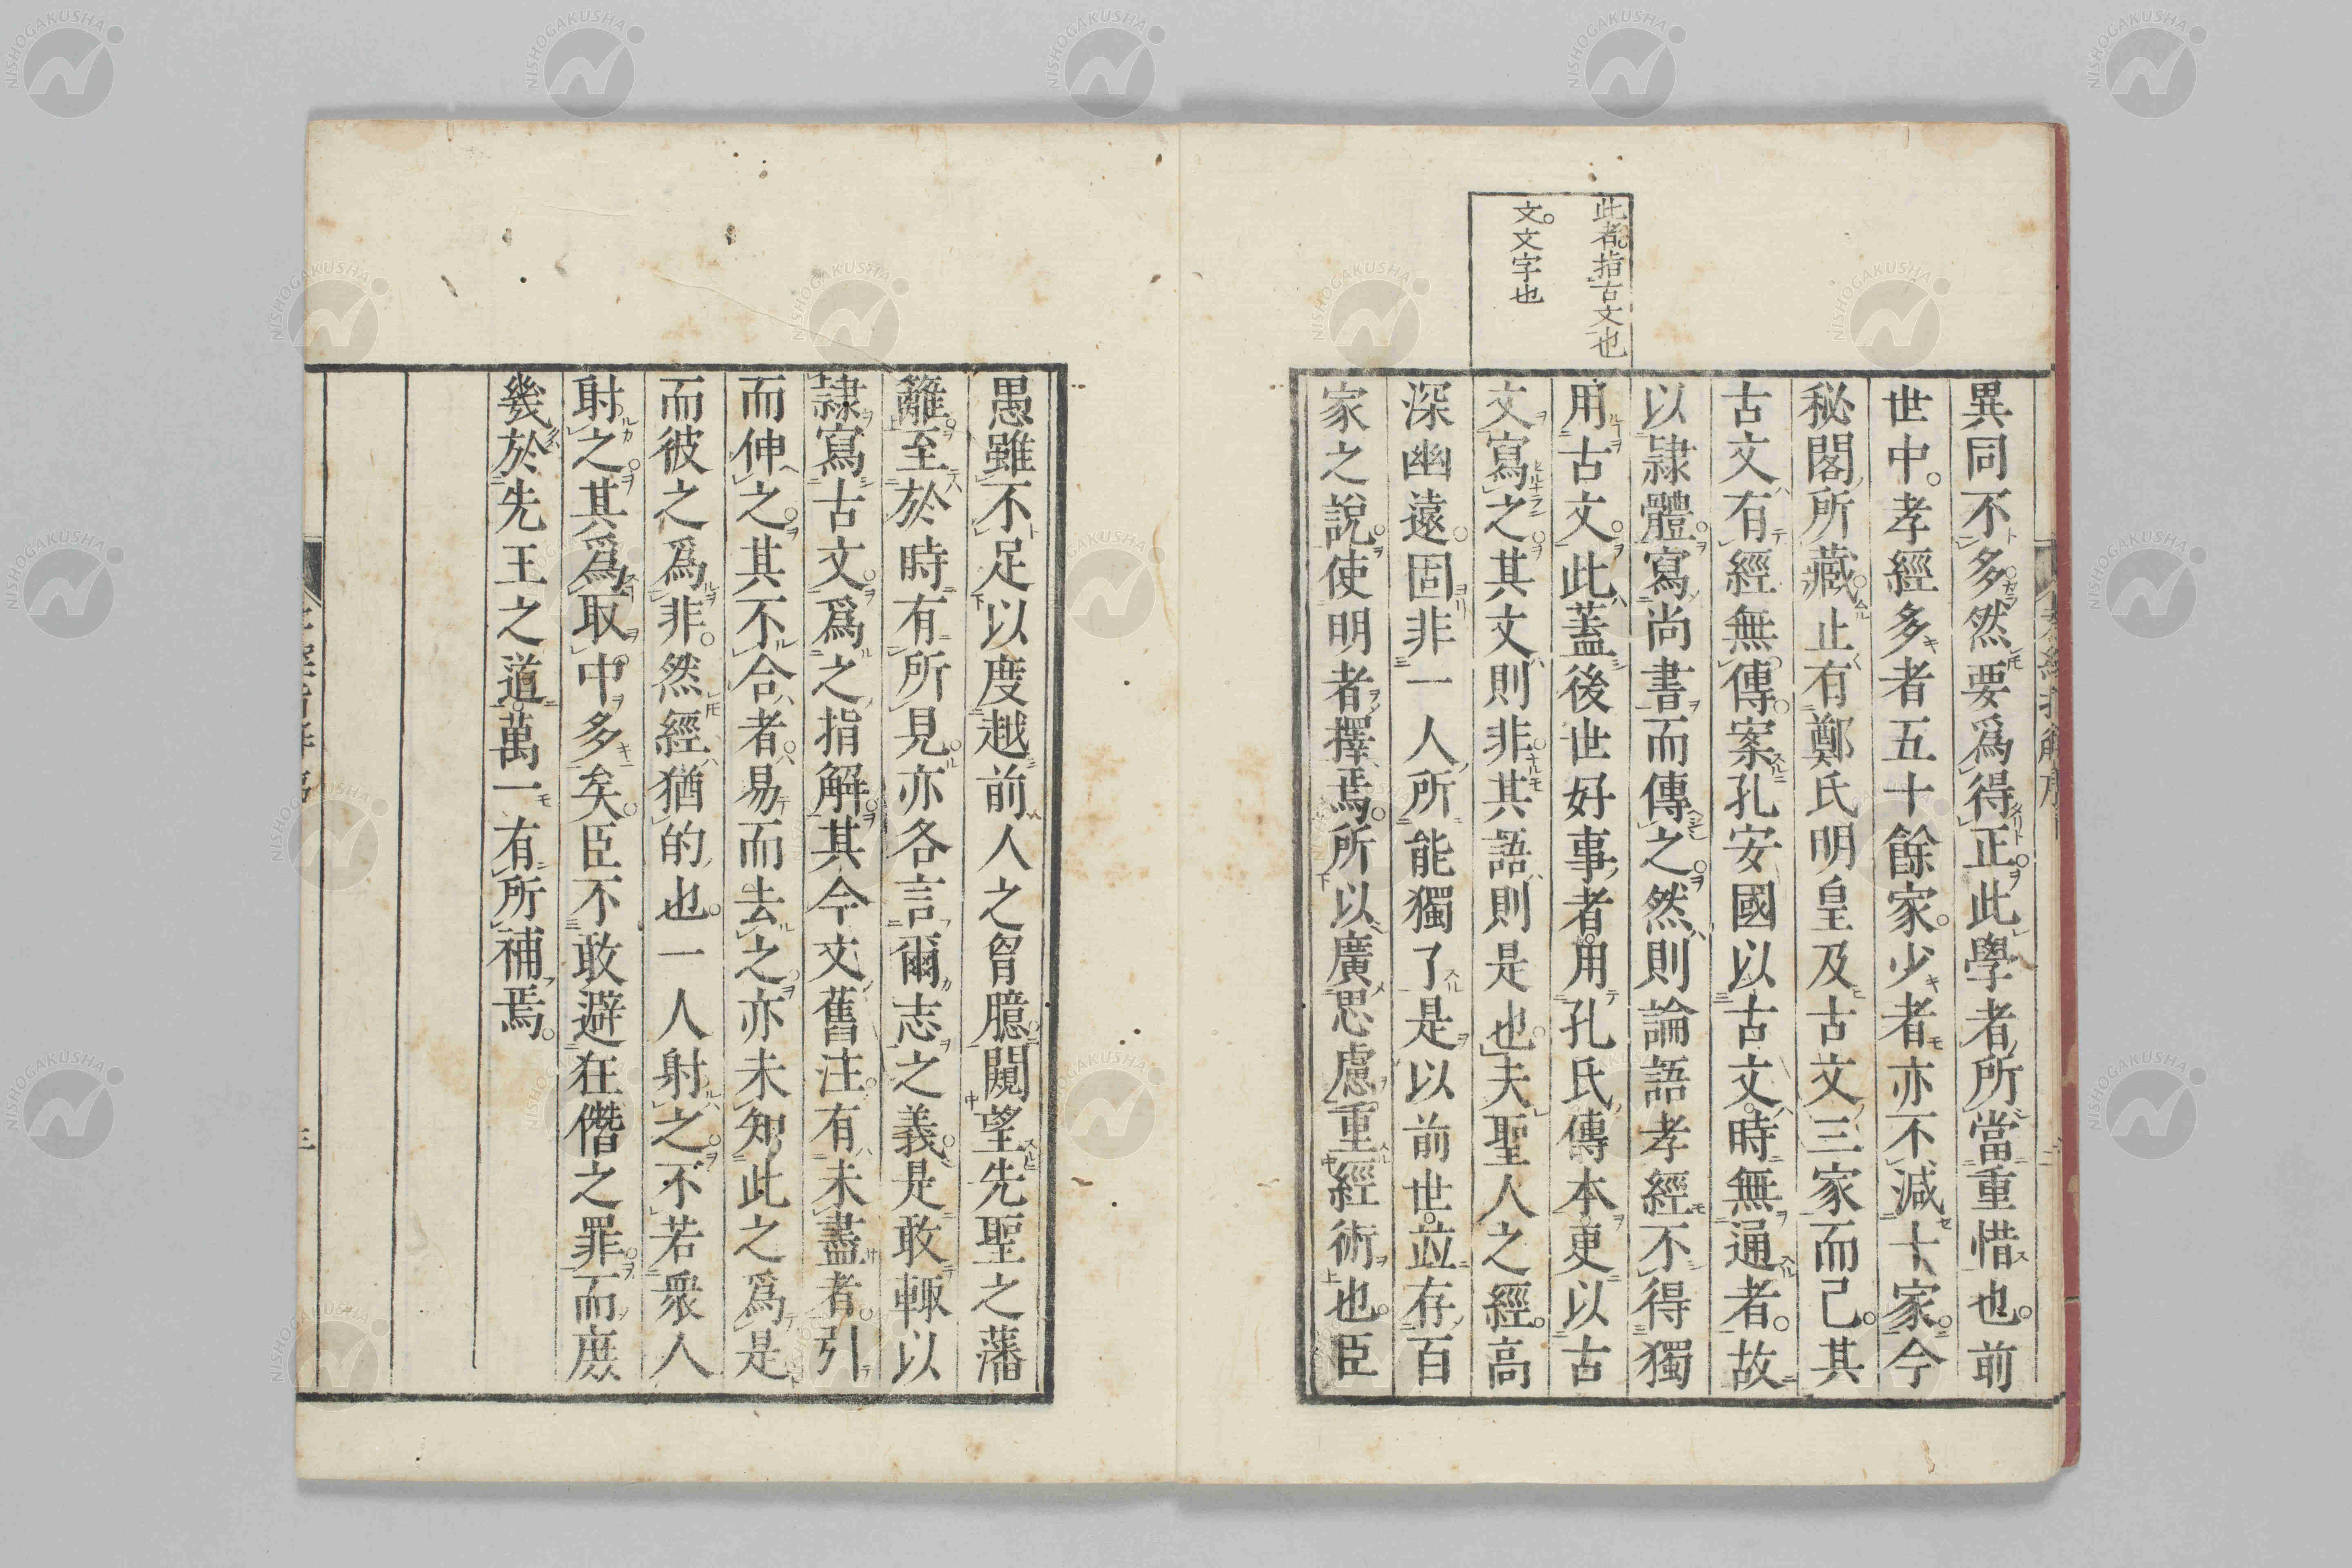 此者指古文也
文。文字也
異同不多然要爲得正此學者所當重惜也前
世中孝經多者五十餘家少者亦不減十家今
秘閣所藏止有鄭氏明皇及古文三家而已其
古文有經無傳案孔安國以古文時無通者故
以隷體寫尚書而傳之然則論語孝經不得獨
用古文此蓋後世好事者用孔氏傳本更以古
文寫之其文則非其語則是也夫聖人之經高
深幽遠固非一人所能獨了是以前世竝存百
家之說使明者擇焉所以廣思慮重經術也臣
愚雖不足以度越前人之胷臆闚望先聖之藩
籬至於時有所見亦各言爾志之義是敢輙以
隷寫古文爲之指解其今文舊注有未盡者引
而伸之其不合者易而去之亦未知此之爲是
而彼之爲非然經猶的也一人射之不若衆人
射之其爲取中多矣臣不敢避狂僭之罪而庶
幾於先王之道萬一有所補焉
NISHOGAKUSHA